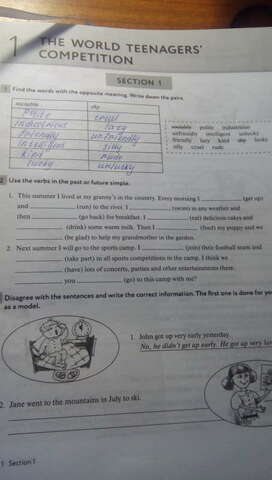 1 THE WORLD TEENAGERS'
COMPETITION
SECTION 1
1 Find the words with the opposite meaning. Write down the pairs.
sociable shy
Polite cruel
Industrious lazy
Friendly unfriendly
Intelligent silly
Kind rude
lucky unlucky
sociable polite industrious
unfriendly intelligent unlucky
friendly lazy kind shy lucky
silly cruel rude
2 Use the verbs in the past or future simple.
1. This summer I lived at my granny's in the country. Every morning I ______ (get up)
and ______ (run) to the river. I ______ (swim) in any weather and
then ______ (go back) for breakfast. I ______ (eat) delicious cakes and
______ (drink) some warm milk. Then I ______ (feed) my puppy and we
______ (be glad) to help my grandmother in the garden.
2. Next summer I will go to the sports camp. I ______ (join) their football team and
______ (take part) in all sports competitions in the camp. I think we
______ (have) lots of concerts, parties and other entertainments there.
______ you ______ (go) to this camp with me?
3 Disagree with the sentences and write the correct information. The first one is done for you
as a model.
1. John got up very early yesterday.
No, he didn't get up early. He got up very late
2. Jane went to the mountains in July to ski.
1 Section 1